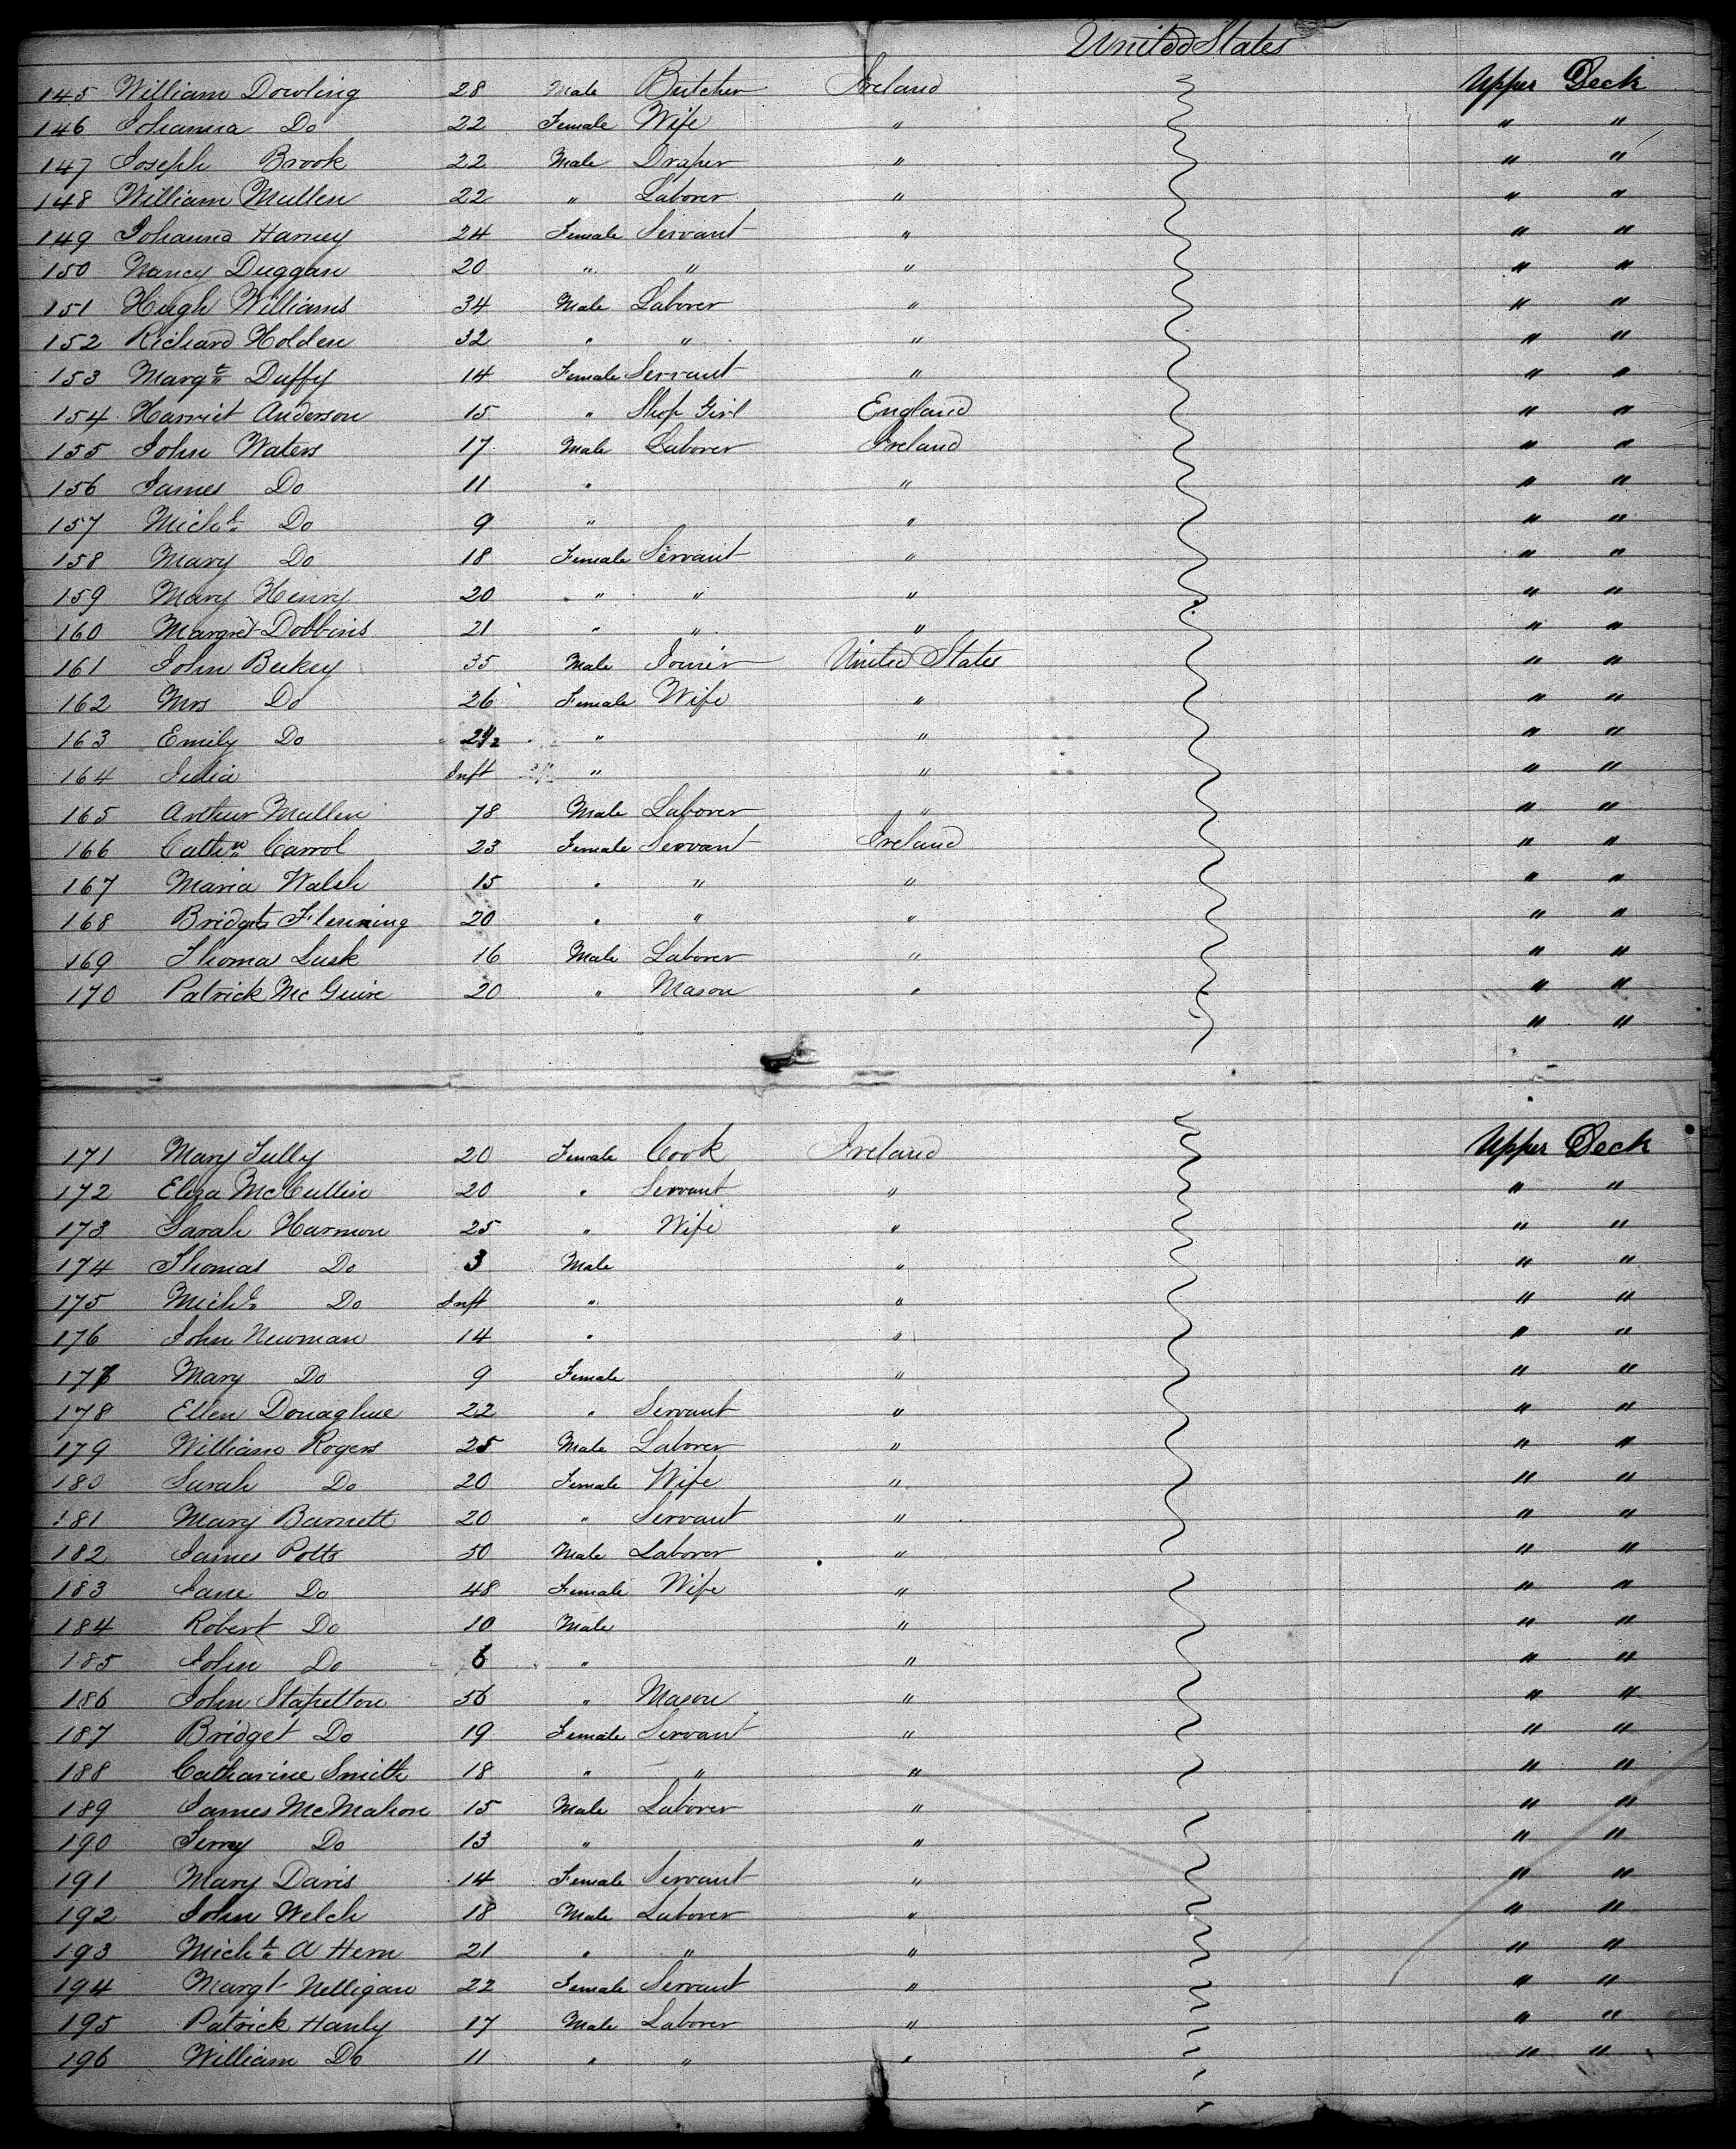 United States
145 William Dowling 28 Male Butcher Ireland Upper Deck
146 Johanna Do 22 Female Wife " " "
147 Joseph Brook 22 Male Draper " " "
148 William Mullen 22 " Laborer " " "
149 Johanna Harney 24 Female Servant " " "
150 Nancy Duggan 20 " " " " "
151 Hugh Williams 34 Male Laborer " " "
152 Richard Holden 32 " " " " "
153 Margt Duffy 14 Female Servant " " "
154 Harriet Anderson 15 " Shop Girl England " "
155 John Waters 17 Male Laborer Ireland " "
156 James Do 11 " " " "
157 Michl Do 9 " " " "
158 Mary Do 18 Female Servant " " "
159 Mary Henry 20 " " " " "
160 Margret Dobbins 21 " " " " "
161 John Beekey 35 Male Joiner United States " "
162 Mrs Do 26 Female Wife " " "
163 Emily Do 2 1/2 " " " "
164 Julia Inft " " " "
165 Arthur Mullen 78 Male Laborer " " "
166 Cathn Carrol 23 Female Servant Ireland " "
167 Maria Walsh 15 " " " " "
168 Bridget Flenning 20 " " " " "
169 Thomas Lusk 16 Male Laborer " " "
170 Patrick McGuire 20 " Mason " " "
" "
171 Mary Tully 20 Female Cook Ireland Upper Deck
172 Eliza McCullin 20 " Servant " " "
173 Sarah Harmon 25 " Wife " " "
174 Thomas Do 3 Male " " "
175 Michl Do Inft " " " "
176 John Newman 14 " " " "
177 Mary Do 9 Female " " "
178 Ellen Donaghue 22 " Servant " " "
179 William Rogers 25 Male Laborer " " "
180 Sarah Do 20 Female Wife " " "
181 Mary Barnett 20 " Servant " " "
182 James Potts 50 Male Laborer " " "
183 Jane Do 48 Female Wife " " "
184 Robert Do 10 Male " " "
185 John Do 6 " " " "
186 John Stapelton 56 " Mason " " "
187 Bridget Do 19 Female Servant " " "
188 Catharine Smith 18 " " " " "
189 James McMahon 15 Male Laborer " " "
190 Terry Do 13 " " " "
191 Mary Davis 14 Female Servant " " "
192 John Welch 18 Male Laborer " " "
193 Michl A Hern 21 " " " " "
194 Margt Nelligan 22 Female Servant " " "
195 Patrick Hanly 17 Male Laborer " " "
196 William Do 11 " " " " "